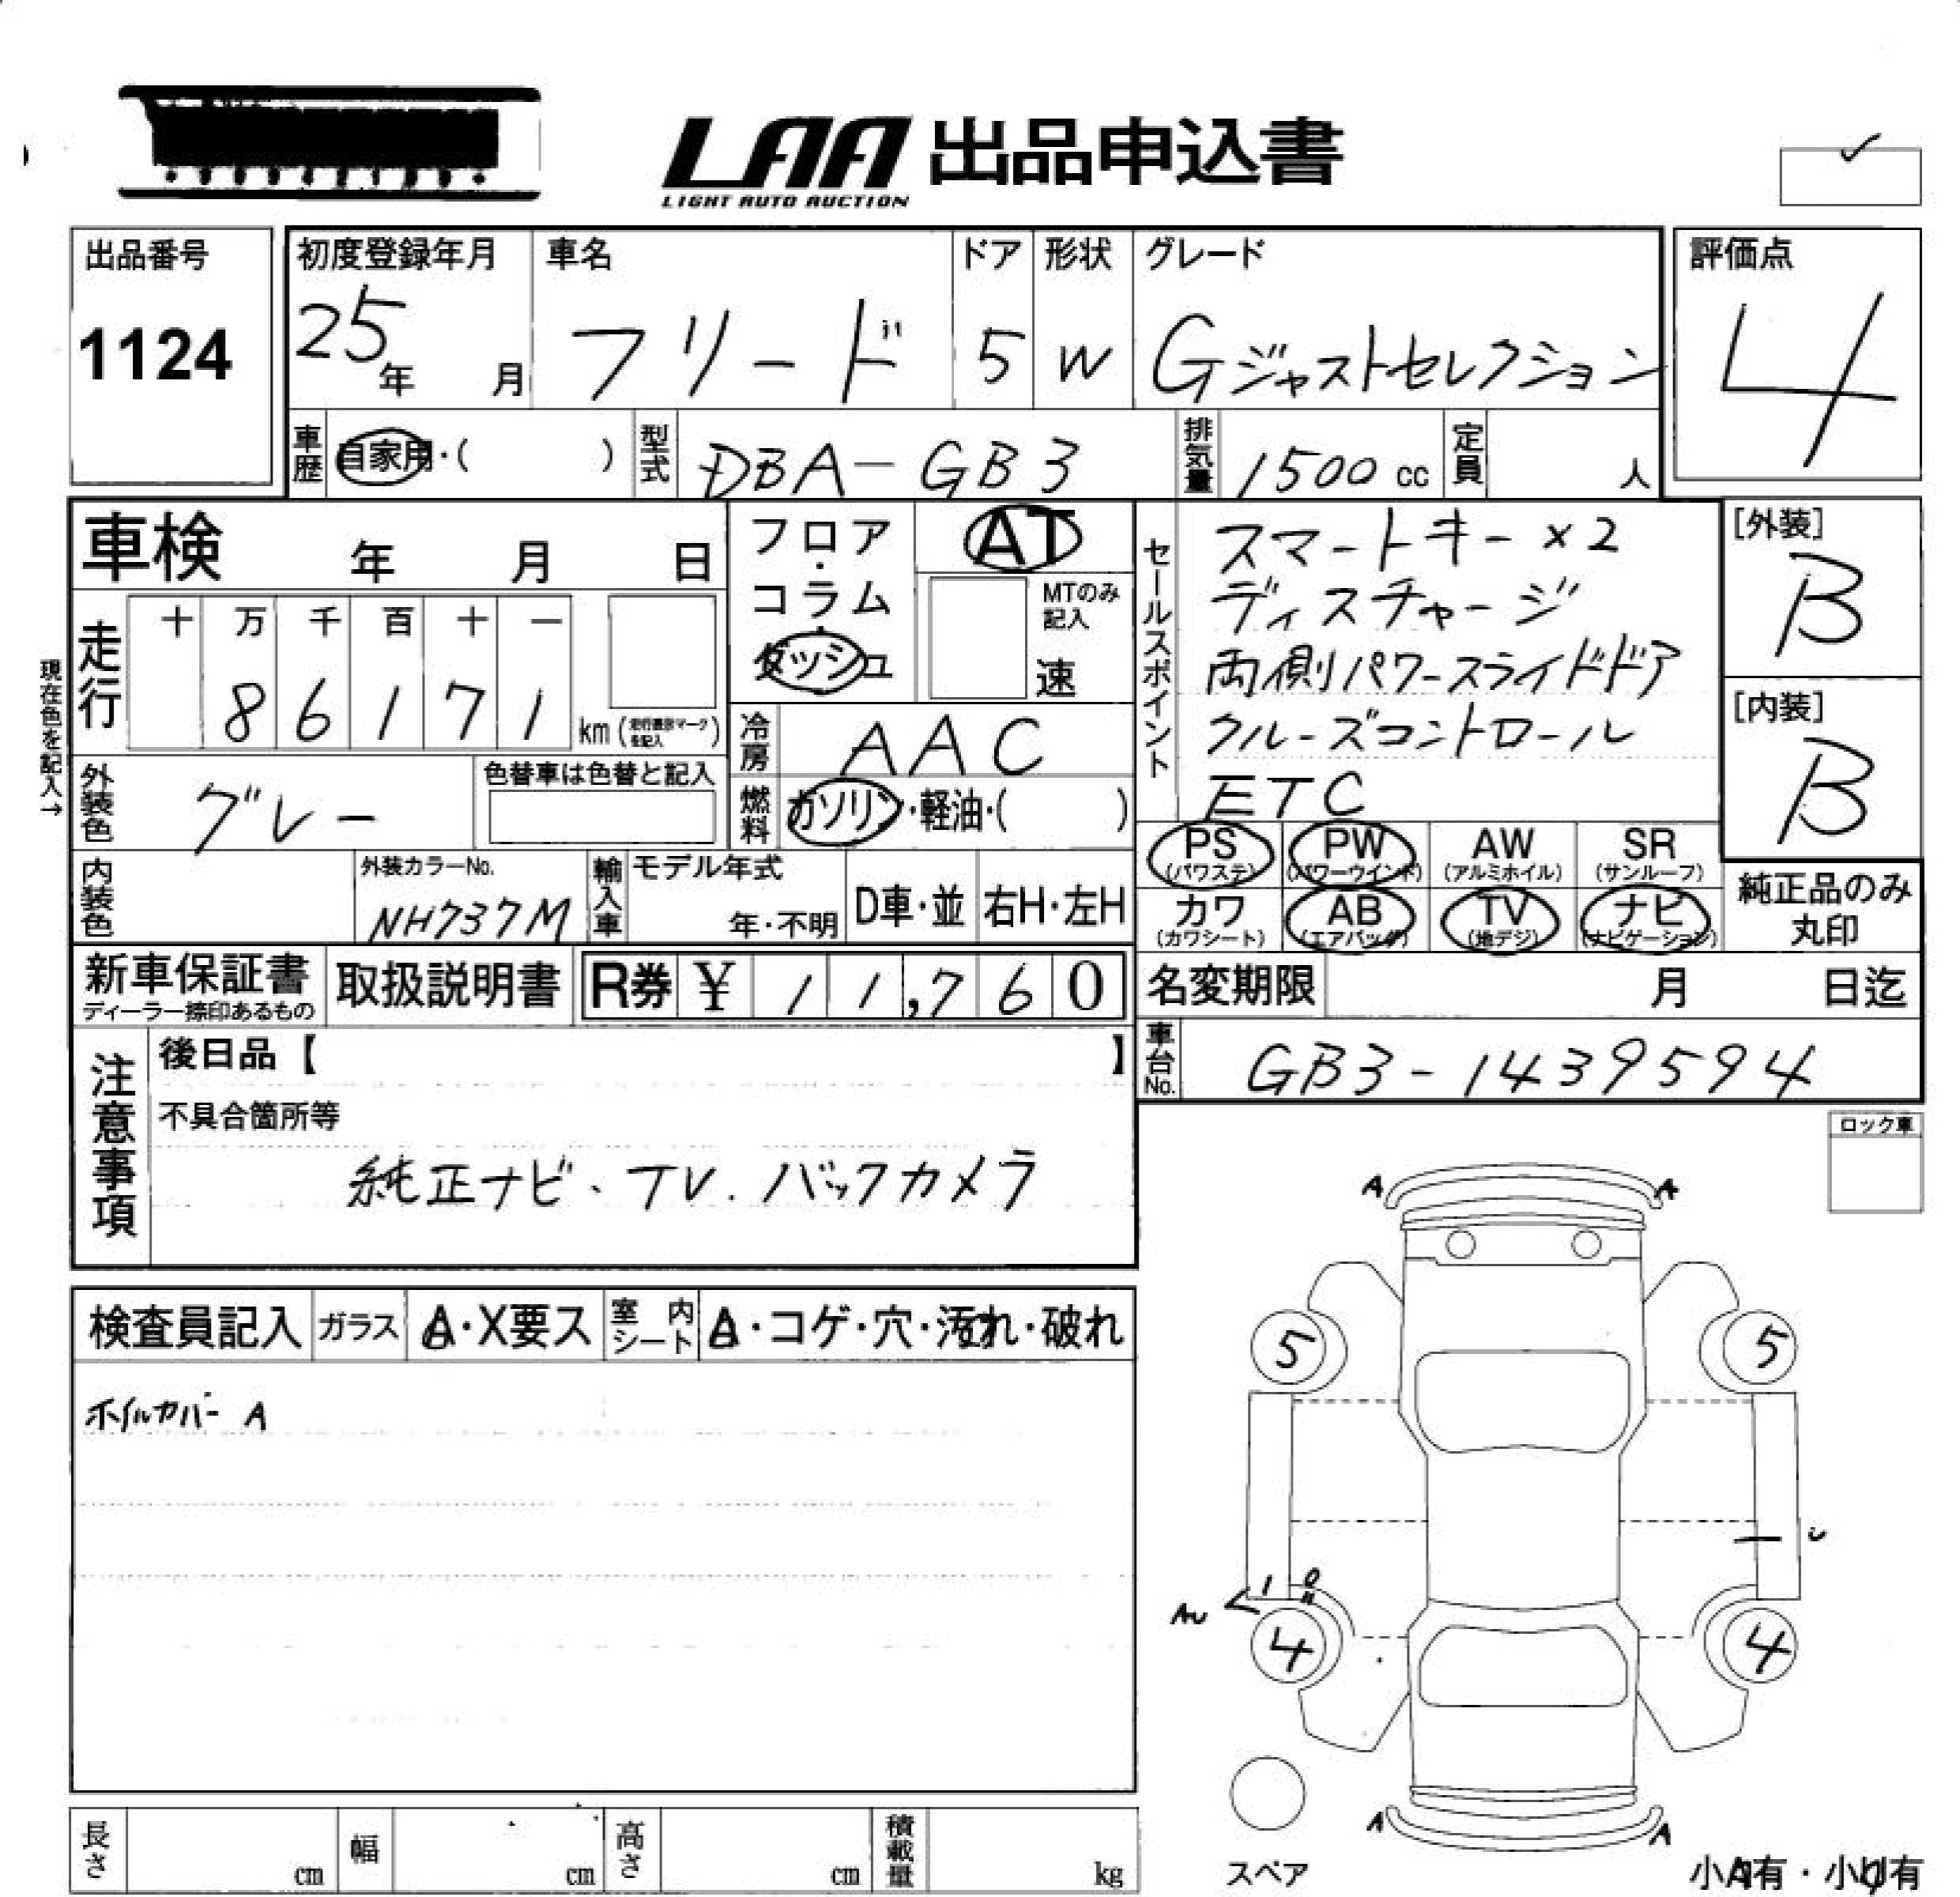 LAA 出品申込書
LIGHT AUTO AUCTION
出品番号
1124
初度登録年月
25年 月
車名
フリード
ドア
5
形状
W
グレード
Gジャストセレクション
評価点
4
車歴 自家用・( )
型式 DBA-GB3
排気量 1500cc
定員 人
車検 年 月 日
フロア・コラム・ダッシュ
AT
MTのみ記入
速
セールスポイント
スマートキー×2
ディスチャージ
両側パワースライドドア
クルーズコントロール
ETC
[外装]
B
[内装]
B
現在色を記入→
走行
十 万 千 百 十 一
8 6 1 7 1 km (走行表示マークを記入)
冷房 AAC
外装色 グレー
色替車は色替と記入
燃料 ガソリン・軽油・( )
PS (パワステ) PW (パワーウインド) AW (アルミホイル) SR (サンルーフ)
カワ (カワシート) AB (エアバッグ) TV (地デジ) ナビ (ナビゲーション)
純正品のみ丸印
内装色
外装カラーNo.
NH737M
輸入車
モデル年式
年・不明
D車・並
右H・左H
新車保証書
ディーラー捺印あるもの
取扱説明書
R券 ¥ 11,760
名変期限 月 日迄
車台No. GB3-1439594
注意事項
後日品【 】
不具合箇所等
純正ナビ、TV.バックカメラ
ロック車
検査員記入 ガラス A・X要ス 室内シート A・コゲ・穴・汚れ・破れ
ホイルカバー A
A A
5 5
AU 4 4
A A
スペア
小A有・小U有
長さ cm 幅 cm 高さ cm 積載量 kg